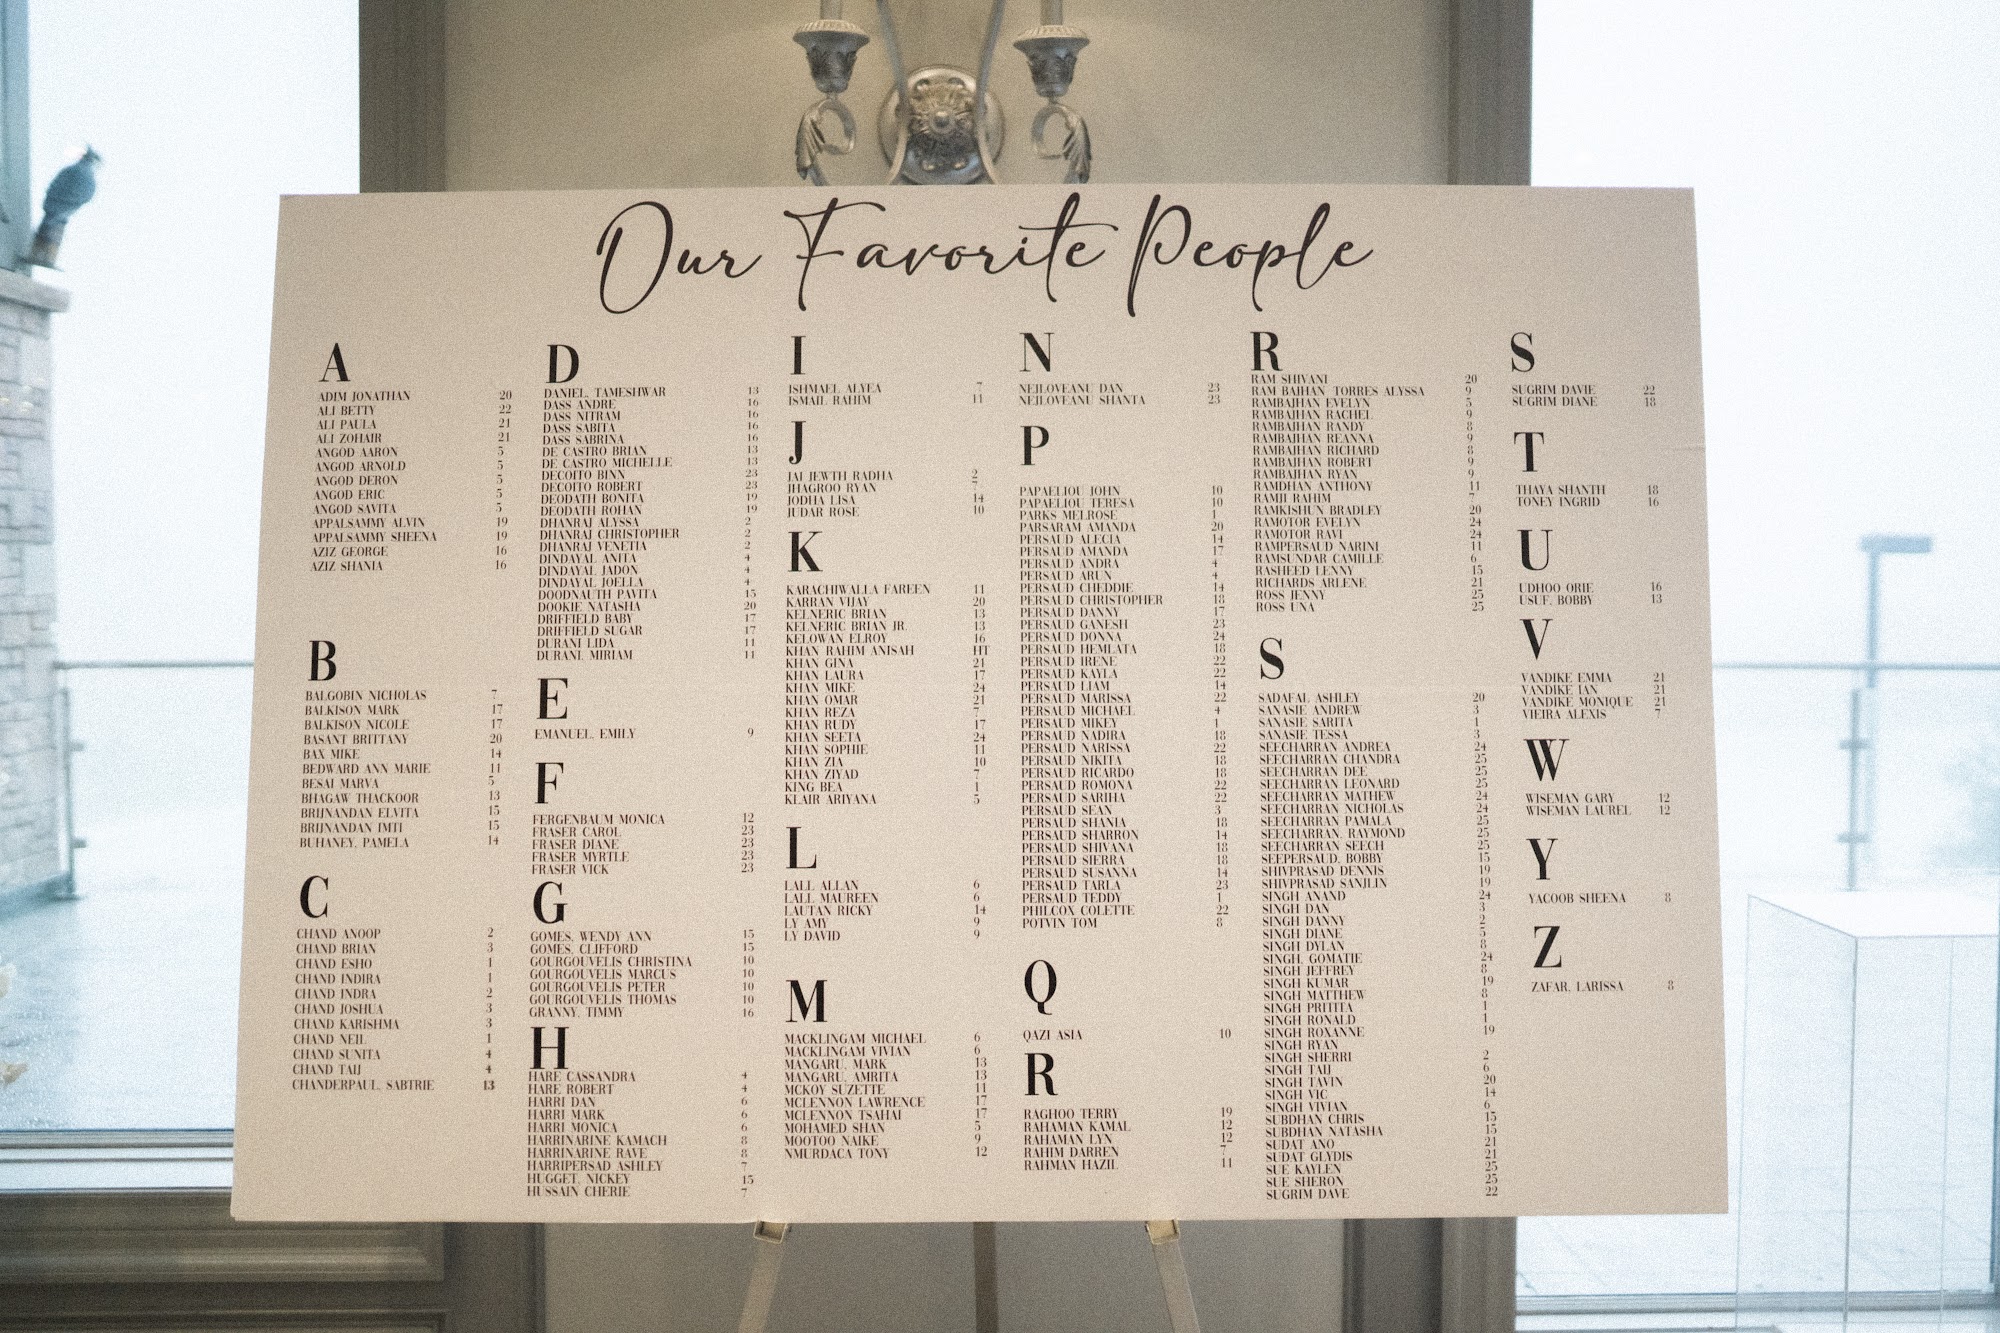 Our Favorite People
A
ADIM JONATHAN 20
ALI BETTY 22
ALI PAULA 21
ALI ZOHAIR 21
ANGOD AARON 5
ANGOD ARNOLD 5
ANGOD DERON 5
ANGOD ERIC 5
ANGOD SAVITA 5
APPALSAMMY ALVIN 19
APPALSAMMY SHEENA 19
AZIZ GEORGE 16
AZIZ SHANIA 16
B
BALGOBIN NICHOLAS 7
BALKISON MARK 17
BALKISON NICOLE 17
BASANT BRITTANY 20
BAX MIKE 14
BEDWARD ANN MARIE 11
BESAI MARVA 5
BHAGAW THACKOOR 13
BRIJNANDAN ELVITA 15
BRIJNANDAN IMTI 15
BUHANEY, PAMELA 14
C
CHAND ANOOP 2
CHAND BRIAN 3
CHAND ESHO 1
CHAND INDIRA 1
CHAND INDRA 2
CHAND JOSHUA 3
CHAND KARISHMA 3
CHAND NEIL 1
CHAND SUNITA 4
CHAND TAIJ 4
CHANDERPAUL, SABTRIE 13
D
DANIEL, TAMESHWAR 13
DASS ANDRE 16
DASS NITRAM 16
DASS SABITA 16
DASS SABRINA 16
DE CASTRO BRIAN 13
DE CASTRO MICHELLE 13
DECOITO BINN 23
DECOITO ROBERT 23
DEODATH BONITA 19
DEODATH ROHAN 19
DHANRAJ ALYSSA 2
DHANRAJ CHRISTOPHER 2
DHANRAJ VENETIA 2
DINDAYAL ANITA 4
DINDAYAL JADON 4
DINDAYAL JOELLA 4
DOODNAUTH PAVITA 15
DOOKIE NATASHA 20
DRIFFIELD BABY 17
DRIFFIELD SUGAR 17
DURANI LIDA 11
DURANI, MIRIAM 11
E
EMANUEL, EMILY 9
F
FERGENBAUM MONICA 12
FRASER CAROL 23
FRASER DIANE 23
FRASER MYRTLE 23
FRASER VICK 23
G
GOMES, WENDY ANN 15
GOMES, CLIFFORD 15
GOURGOUVELIS CHRISTINA 10
GOURGOUVELIS MARCUS 10
GOURGOUVELIS PETER 10
GOURGOUVELIS THOMAS 10
GRANNY, TIMMY 16
H
HARE CASSANDRA 4
HARE ROBERT 4
HARRI DAN 6
HARRI MARK 6
HARRI MONICA 6
HARRINARINE KAMACH 8
HARRINARINE RAVE 8
HARRIPERSAD ASHLEY 7
HUGGET, NICKEY 15
HUSSAIN CHERIE 7
I
ISHMAEL ALYEA 7
ISMAIL RAHIM 11
J
JAI JEWTH RADHA 2
JHAGROO RYAN 7
JODHA LISA 14
JUDAR ROSE 10
K
KARACHIWALLA FAREEN 11
KARRAN VIJAY 20
KELNERIC BRIAN 13
KELNERIC BRIAN JR. 13
KELOWAN ELROY 16
KHAN RAHIM ANISAH HT
KHAN GINA 21
KHAN LAURA 17
KHAN MIKE 24
KHAN OMAR 21
KHAN REZA 7
KHAN RUDY 17
KHAN SEETA 24
KHAN SOPHIE 11
KHAN ZIA 10
KHAN ZIYAD 7
KING BEA 1
KLAIR ARIYANA 5
L
LALL ALLAN 6
LALL MAUREEN 6
LAUTAN RICKY 14
LY AMY 9
LY DAVID 9
M
MACKLINGAM MICHAEL 6
MACKLINGAM VIVIAN 6
MANGARU, MARK 13
MANGARU, AMRITA 13
MCKOY SUZETTE 11
MCLENNON LAWRENCE 17
MCLENNON TSAHAI 17
MOHAMED SHAN 5
MOOTOO NAIKE 9
NMURDACA TONY 12
N
NEJLOVEANU DAN 23
NEJLOVEANU SHANTA 23
P
PAPAELIOU JOHN 10
PAPAELIOU TERESA 10
PARKS MELROSE 1
PARSARAM AMANDA 20
PERSAUD ALECIA 14
PERSAUD AMANDA 17
PERSAUD ANDRA 4
PERSAUD ARUN 4
PERSAUD CHEDDIE 14
PERSAUD CHRISTOPHER 18
PERSAUD DANNY 17
PERSAUD GANESH 23
PERSAUD DONNA 24
PERSAUD HEMLATA 18
PERSAUD IRENE 22
PERSAUD KAYLA 22
PERSAUD LIAM 14
PERSAUD MARISSA 22
PERSAUD MICHAEL 4
PERSAUD MIKEY 1
PERSAUD NADIRA 18
PERSAUD NARISSA 22
PERSAUD NIKITA 18
PERSAUD RICARDO 18
PERSAUD ROMONA 22
PERSAUD SARIHA 22
PERSAUD SEAN 3
PERSAUD SHANIA 18
PERSAUD SHARRON 14
PERSAUD SHIVANA 18
PERSAUD SIERRA 18
PERSAUD SUSANNA 14
PERSAUD TARLA 23
PERSAUD TEDDY 1
PHILCOX COLETTE 22
POTVIN TOM 8
Q
QAZI ASIA 10
R
RAGHOO TERRY 19
RAHAMAN KAMAL 12
RAHAMAN LYN 12
RAHIM DARREN 7
RAHMAN HAZIL 11
R
RAM SHIVANI 20
RAM BAIHAN TORRES ALYSSA 9
RAMBAJHAN EVELYN 5
RAMBAIHAN RACHEL 9
RAMBAIHAN RANDY 8
RAMBAIHAN REANNA 9
RAMBAIHAN RICHARD 8
RAMBAIHAN ROBERT 9
RAMBAIHAN RYAN 9
RAMDHAN ANTHONY 11
RAMJI RAHIM 7
RAMKISHUN BRADLEY 20
RAMOTOR EVELYN 24
RAMOTOR RAVI 24
RAMPERSAUD NARINI 11
RAMSUNDAR CAMILLE 6
RASHEED LENNY 15
RICHARDS ARLENE 21
ROSS JENNY 25
ROSS UNA 25
S
SADAFAL ASHLEY 20
SANASIE ANDREW 3
SANASIE SARITA 1
SANASIE TESSA 3
SEECHARRAN ANDREA 24
SEECHARRAN CHANDRA 25
SEECHARRAN DEE 25
SEECHARRAN LEONARD 25
SEECHARRAN MATHEW 24
SEECHARRAN NICHOLAS 24
SEECHARRAN PAMALA 25
SEECHARRAN, RAYMOND 25
SEECHARRAN SEECH 25
SEEPERSAUD, BOBBY 15
SHIVPRASAD DENNIS 19
SHIVPRASAD SANJLIN 19
SINGH ANAND 24
SINGH DAN 3
SINGH DANNY 2
SINGH DIANE 5
SINGH DYLAN 8
SINGH, GOMATIE 24
SINGH JEFFREY 8
SINGH KUMAR 19
SINGH MATTHEW 8
SINGH PRITITA 1
SINGH RONALD 1
SINGH ROXANNE 19
SINGH RYAN
SINGH SHERRI 2
SINGH TAIJ 6
SINGH TAVIN 20
SINGH VIC 14
SINGH VIVIAN 6
SUBDHAN CHRIS 15
SUBDHAN NATASHA 15
SUDAT ANO 21
SUDAT GLYDIS 21
SUE KAYLEN 25
SUE SHERON 25
SUGRIM DAVE 22
S
SUGRIM DAVIE 22
SUGRIM DIANE 18
T
THAYA SHANTH 18
TONEY INGRID 16
U
UDHOO ORIE 16
USUF, BOBBY 13
V
VANDIKE EMMA 21
VANDIKE IAN 21
VANDIKE MONIQUE 21
VIEIRA ALEXIS 7
W
WISEMAN GARY 12
WISEMAN LAUREL 12
Y
YACOOB SHEENA 8
Z
ZAFAR, LARISSA 8